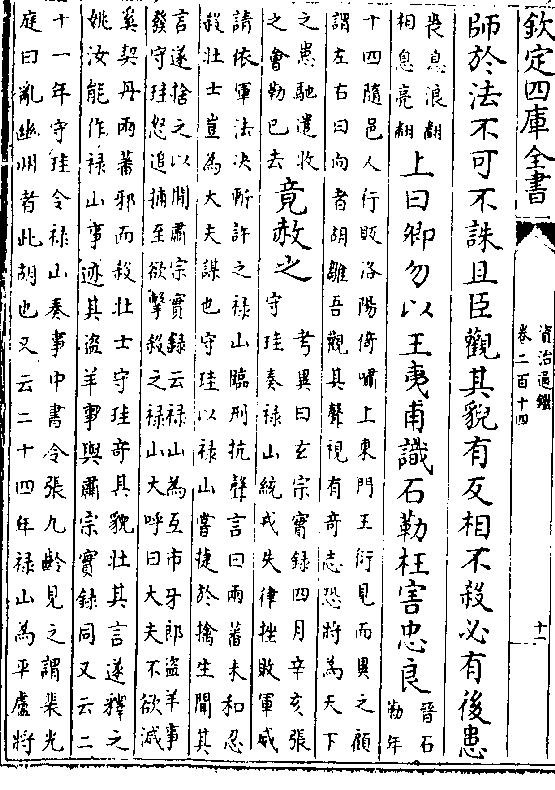 欽定四庫全書
資治通鑑
卷二百十四
十一
師於法不可不誅且臣觀其貌有反相不殺必有後患
喪息浪翻
相息亮翻
上曰卿勿以王夷甫識石勒枉害忠良
晉石
勒年
十四隨邑人行販洛陽倚嘯上東門王衍見而異之顧
謂左右曰向者胡雛吾觀其聲視有奇志恐將為天下
之患馳遣收
之會勒已去
竟赦之
考異曰玄宗實錄四月辛亥張
守珪奏祿山統戎失律挫敗軍威
請依軍法决斬許之祿山臨刑抗聲言曰兩蕃未和忍
殺壯士豈為大夫謀也守珪以祿山嘗捷於擒生聞其
言遂捨之以聞肅宗實錄云祿山為互市牙郎盗羊事
發守珪怒追捕至欲擊殺之祿山大呼曰大夫不欲滅
奚契丹兩蕃邪而殺壯士守珪奇其貌壯其言遂釋之
姚汝能作祿山事迹其盗羊事與肅宗實錄同又云二
十一年守珪令祿山奏事中書令張九齡見之謂裴光
庭曰亂幽州者此胡也又云二十四年祿山為平盧將